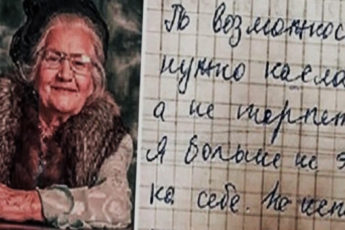 По возможнос
нужно насла
а не терпет
Я больше не э
на себе. Но